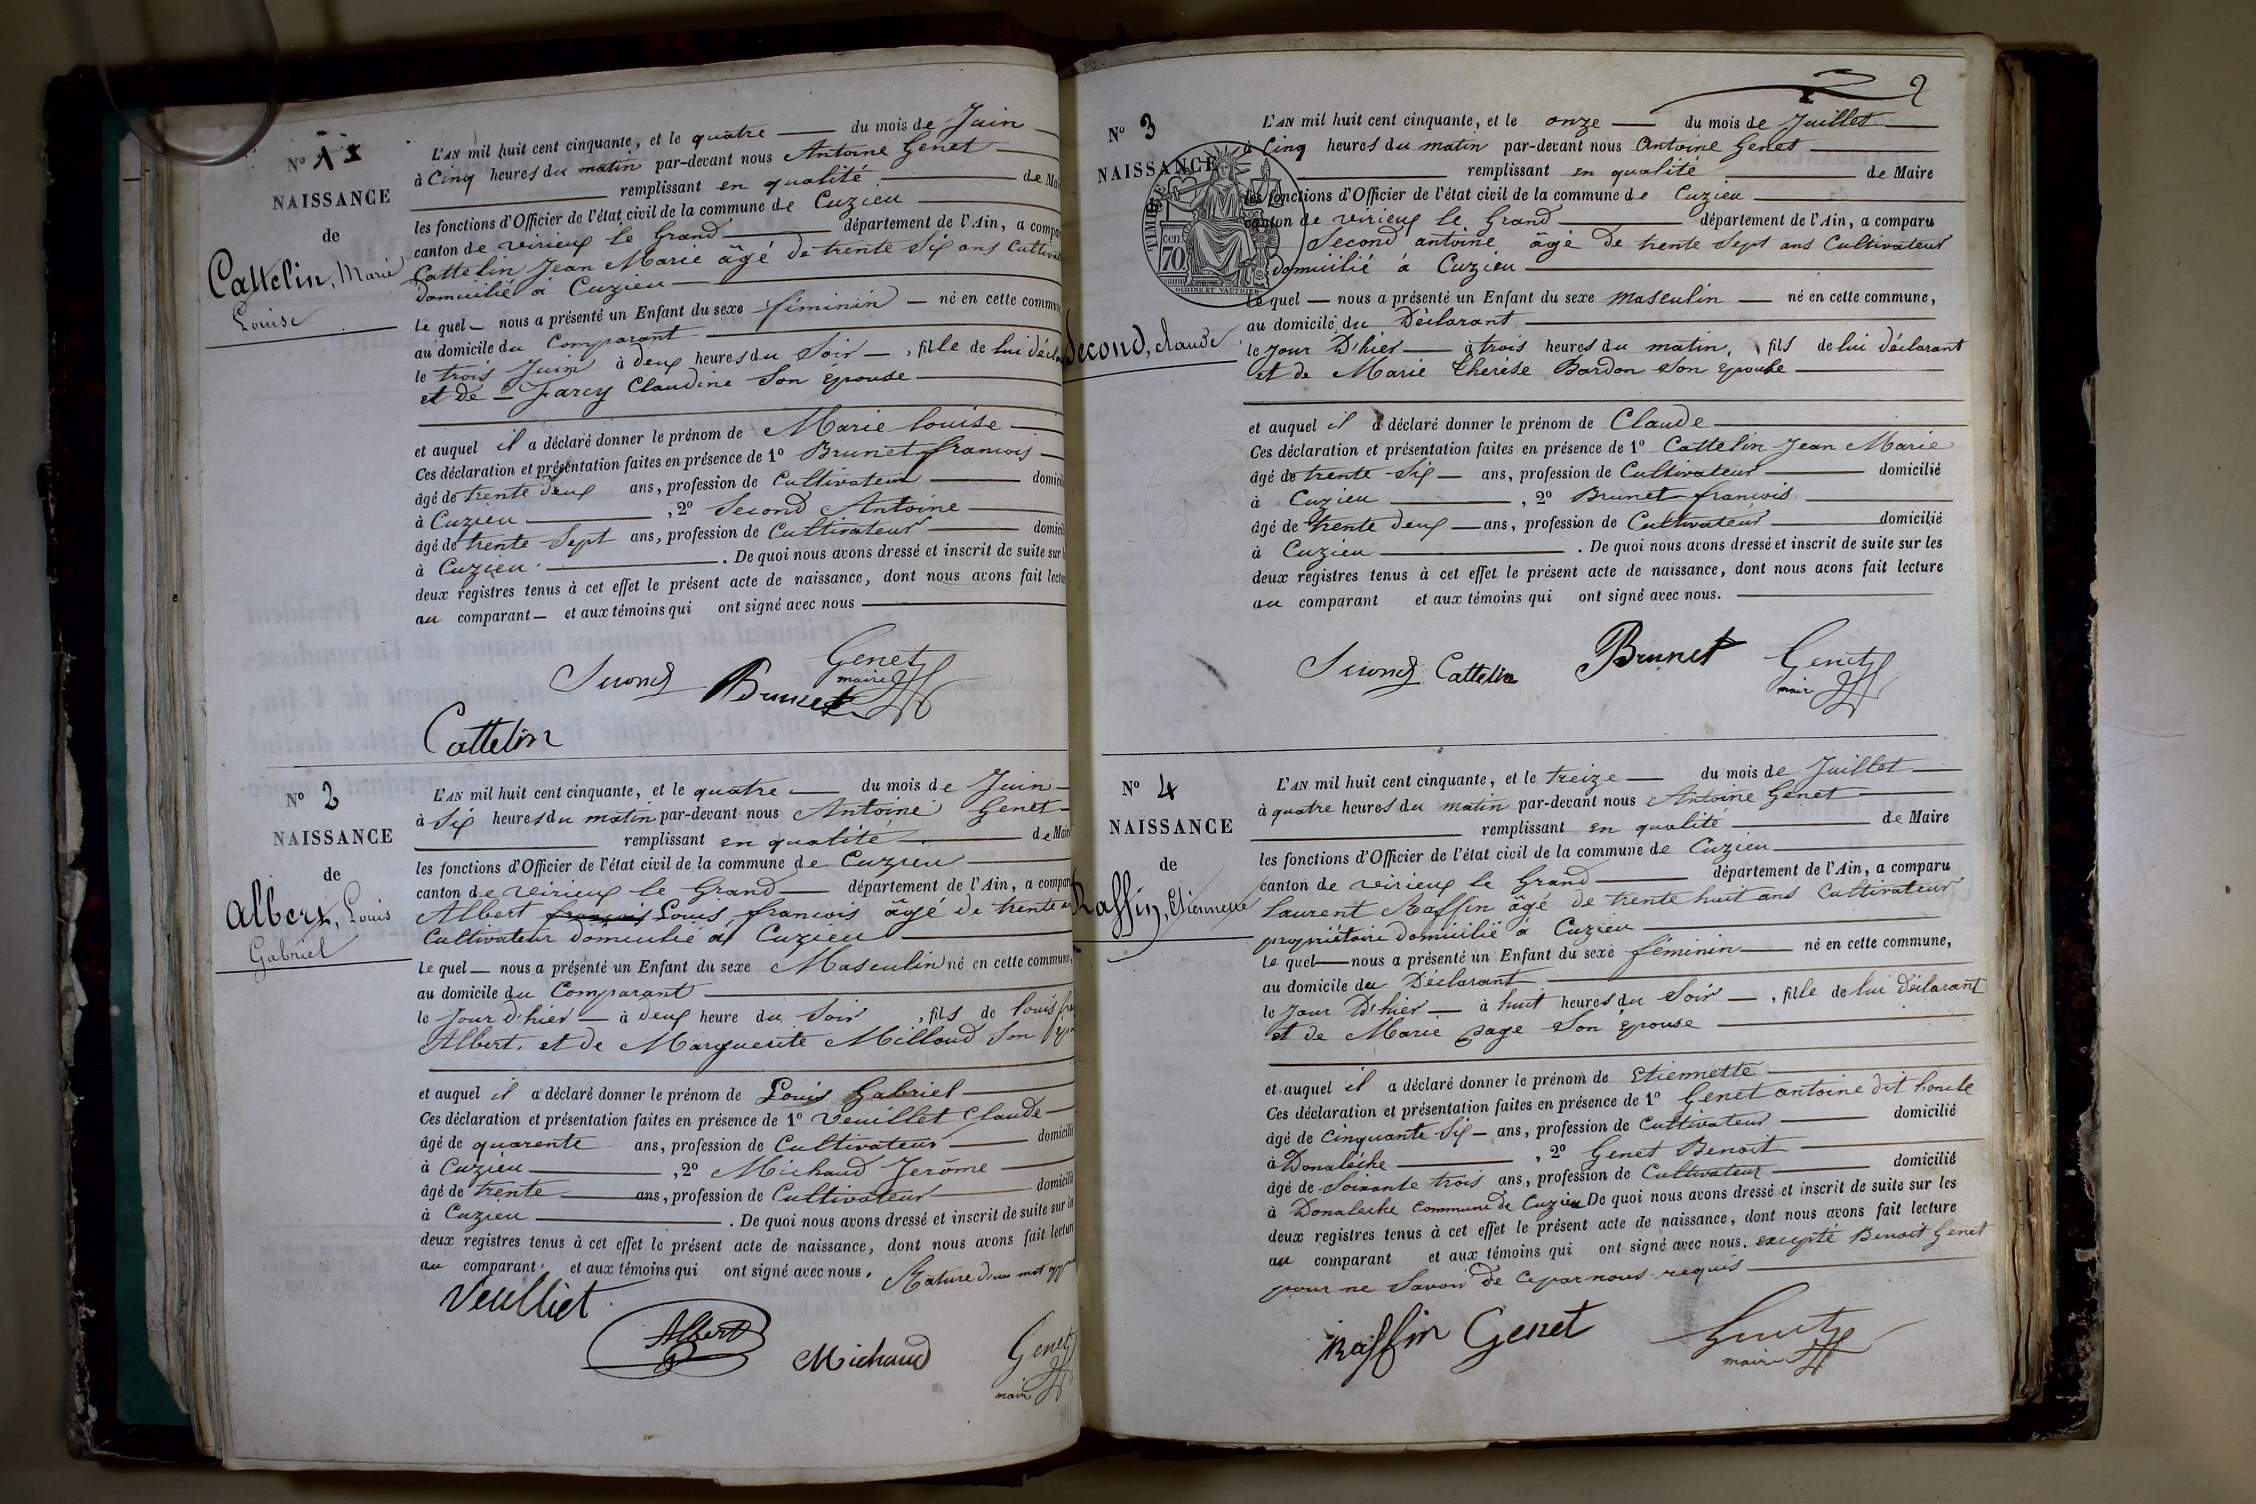 N° 1
NAISSANCE
de
Cattelin, Marie
Louise
L'AN mil huit cent cinquante, et le quatre du mois de Juin
à Cinq heures du matin par-devant nous Antoine Genet
remplissant en qualité de Mai
les fonctions d'Officier de l'état civil de la commune de Cuzieu
canton de virieux le Grand département de l'Ain, a compa
Cattelin Jean Marie âgé de trente Six ans Cultiva
domicilié à Cuzieu
le quel nous a présenté un Enfant du sexe féminin né en cette commun
au domicile du Comparant
le trois Juin à deux heures du Soir, fille de lui décla
et de Jarcy Claudine Son épouse
et auquel il a déclaré donner le prénom de Marie louise
Ces déclaration et présentation faites en présence de 1° Brunet francois
âgé de trente deux ans, profession de Cultivateur domici
à Cuzieu, 2° Second Antoine
âgé de trente Sept ans, profession de Cultivateur domici
à Cuzieu. De quoi nous avons dressé et inscrit de suite sur l
deux registres tenus à cet effet le présent acte de naissance, dont nous avons fait lectu
au comparant et aux témoins qui ont signé avec nous
Second Brunet Genet
maire
Cattelin
N° 2
NAISSANCE
de
Albert, Louis
Gabriel
L'AN mil huit cent cinquante, et le quatre du mois de Juin
à Six heures du matin par-devant nous Antoine Genet
remplissant en qualité de Mair
les fonctions d'Officier de l'état civil de la commune de Cuzieu
canton de virieux le Grand département de l'Ain, a compar
Albert françois Louis francois âgé de trente
Cultivateur domicilié à Cuzieu
le quel nous a présenté un Enfant du sexe Masculin né en cette commune,
au domicile du Comparant
le Jour d'hier à deux heure du Soir, fils de louis fra
Albert. et de Marguerite Milloud Son
et auquel il a déclaré donner le prénom de Louis Gabriel
Ces déclaration et présentation faites en présence de 1° Veuillet Claude
âgé de quarente ans, profession de Cultivateur domicilié
à Cuzieu, 2° Michaud Jerôme
âgé de trente ans, profession de Cultivateur domicilié
à Cuzieu. De quoi nous avons dressé et inscrit de suite sur le
deux registres tenus à cet effet le présent acte de naissance, dont nous avons fait lectur
au comparant et aux témoins qui ont signé avec nous. Rature d'un mot
Veulliet
Albert Michaud Genet
maire
2
N° 3
NAISSANCE
TIMBRE
70 cen
OUDINÉ ET VAUTHIER
Second, claude
L'AN mil huit cent cinquante, et le onze du mois de Juillet
à Cinq heures du matin par-devant nous Antoine Genet
remplissant en qualité de Maire
les fonctions d'Officier de l'état civil de la commune de Cuzieu
canton de virieux le Grand département de l'Ain, a comparu
Second antoine âgé de trente Sept ans Cultivateur
domicilié à Cuzieu
le quel nous a présenté un Enfant du sexe masculin né en cette commune,
au domicile du Déclarant
le Jour D'hier à trois heures du matin, fils de lui déclarant
et de Marie thérèse Bardon Son épouse
et auquel il a déclaré donner le prénom de Claude
Ces déclaration et présentation faites en présence de 1° Cattelin Jean Marie
âgé de trente Six ans, profession de Cultivateur domicilié
à Cuzieu, 2° Brunet francois
âgé de trente deux ans, profession de Cultivateur domicilié
à Cuzieu. De quoi nous avons dressé et inscrit de suite sur les
deux registres tenus à cet effet le présent acte de naissance, dont nous avons fait lecture
au comparant et aux témoins qui ont signé avec nous.
Second Cattelin Brunet Genet
mair
N° 4
NAISSANCE
de
Raffin, Etiennette
L'AN mil huit cent cinquante, et le treize du mois de Juillet
à quatre heures du matin par-devant nous Antoine Genet
remplissant en qualité de Maire
les fonctions d'Officier de l'état civil de la commune de Cuzieu
canton de virieux le Grand département de l'Ain, a comparu
laurent Raffin âgé de trente huit ans Cultivateur
propriétaire domicilié à Cuzieu
le quel nous a présenté un Enfant du sexe féminin né en cette commune,
au domicile du Déclarant
le Jour D'hier à huit heures du Soir, fille de lui déclarant
et de Marie page Son épouse
et auquel il a déclaré donner le prénom de Etiennette
Ces déclaration et présentation faites en présence de 1° Genet antoine dit
âgé de Cinquante Six ans, profession de Cultivateur domicilié
à Donalèche, 2° Genet Benoit
âgé de Soixante trois ans, profession de Cultivateur domicilié
à Donaleche Commune de Cuzieu De quoi nous avons dressé et inscrit de suite sur les
deux registres tenus à cet effet le présent acte de naissance, dont nous avons fait lecture
au comparant et aux témoins qui ont signé avec nous. excepté Benoit Genet
pour ne Savoir de ce par nous requis
Raffin Genet Genet
maire